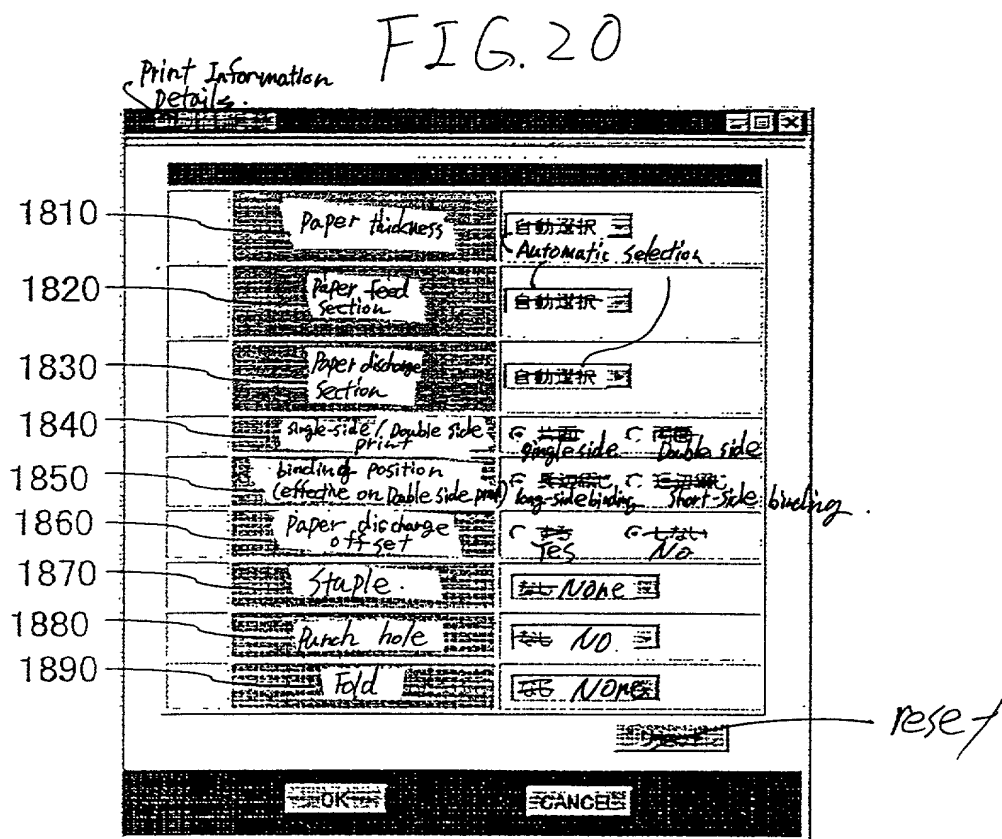 FIG. 20
Print Information
Details.
1810 Paper thickness 自動選択
Automatic selection
1820 Paper feed
section 自動選択
1830 Paper discharge
section 自動選択
1840 single-side / Double side
print 片面 両面
single side Double side
1850 binding position
(effective on Double side print) 長辺綴じ 短辺綴じ
long-side binding short-side binding.
1860 Paper discharge
offset する しない
Yes No
1870 Staple. なし None
1880 Punch hole なし NO.
1890 Fold なし None
reset
OK CANCEL